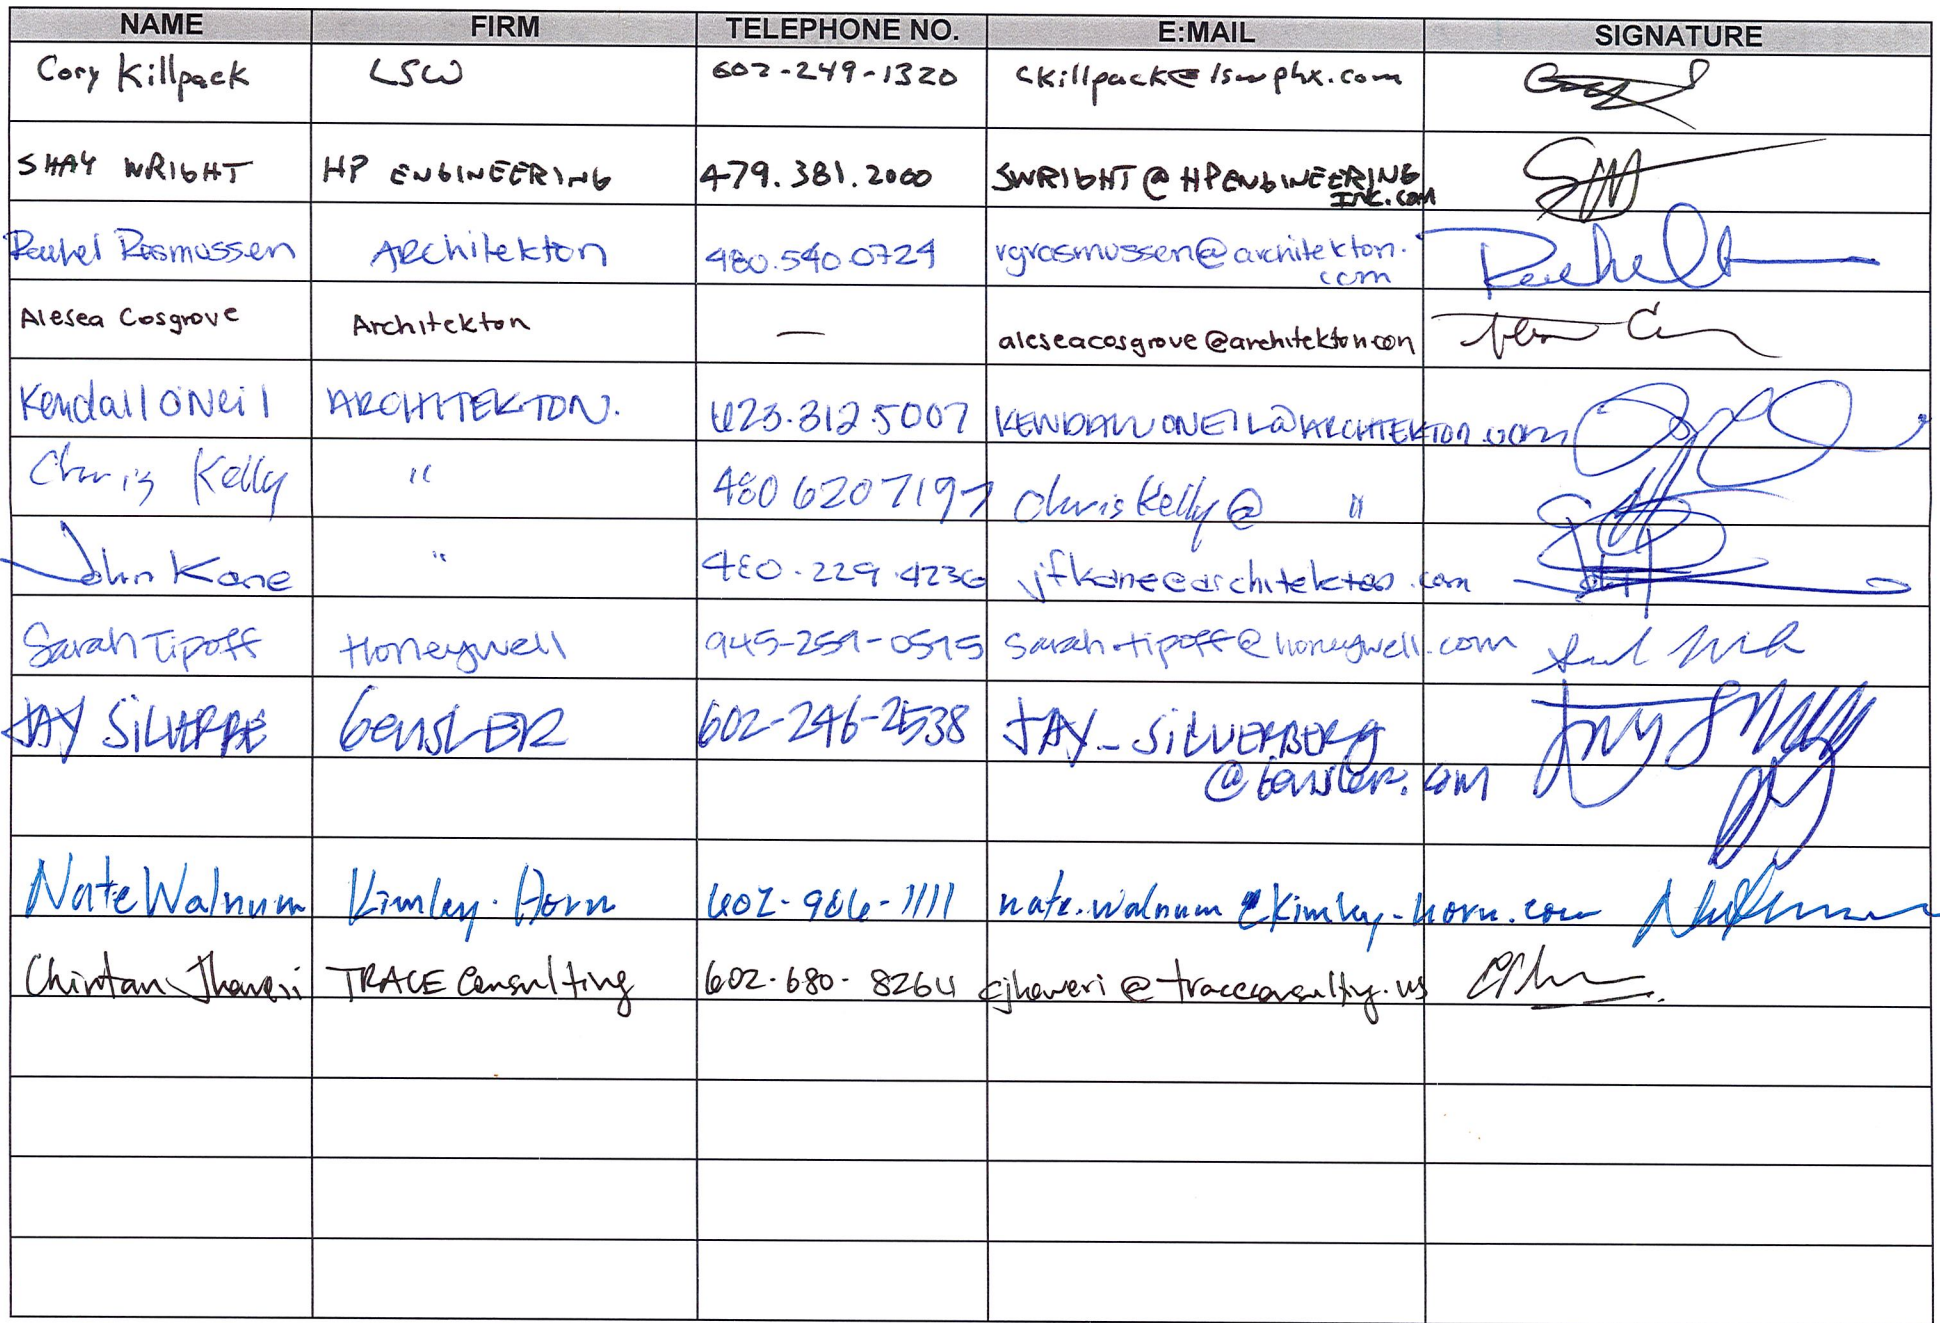 NAME FIRM TELEPHONE NO. E:MAIL SIGNATURE
Cory Killpack LSW 602-249-1320 ckillpack@lswphx.com
SHAY WRIGHT HP ENGINEERING 479.381.2000 SWRIGHT@HPENGINEERING
INC.com
Rachel Rasmussen Architekton 480.540.0724 rgrasmussen@architekton.
com
Alesea Cosgrove Architekton — aleseacosgrove@architekton.com
Kendall ONeil ARCHITEKTON. 623.312.5007 KENDALLONEIL@ARCHITEKTON.com
Chris Kelly " 480 620 7197 ChrisKelly@ "
John Kane " 480.229.4236 jfkane@architekton.com
Sarah Tipoff Honeywell 945-259-0515 sarah.tipoff@honeywell.com
JAY GENSLER 602-246-2538 JAY_SILVERBERG
@Gensler.com
Nate Walnum Kimley-Horn 602-906-1111 nate.walnum@kimley-horn.com
Chintan Jhaveri TRACE Consulting 602-680-8264 cjhaveri@traceconsulting.us